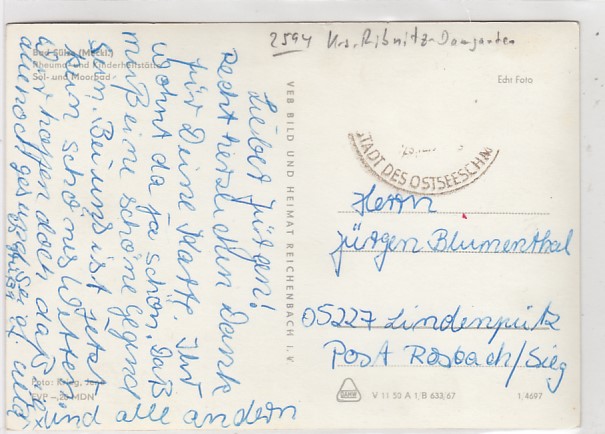 2594 Krs. Ribnitz-Damgarten
Bad Sülze (Meckl.)
Rheuma- und Kinderheilstätte
Sol- und Moorbad
Echt Foto
Lieber Jürgen!
Recht herzlichen Dank
für Deine Karte. Ihr
wohnt da ja schön. Daß
muß eine schöne Gegend
sein. Bei uns ist jetzt
kein schönes Wetter
wir hoffen doch daß
alle noch gesund
und alle andern
VEB BILD UND HEIMAT REICHENBACH I. V.
STADT DES OSTSEESCHM
Herrn
Jürgen Blumenthal
05227 Lindenpütz
Post Rosbach/Sieg
Foto: Krieg,
EVP -,20 MDN
V 11 50 A 1/B 633/67
1,4697